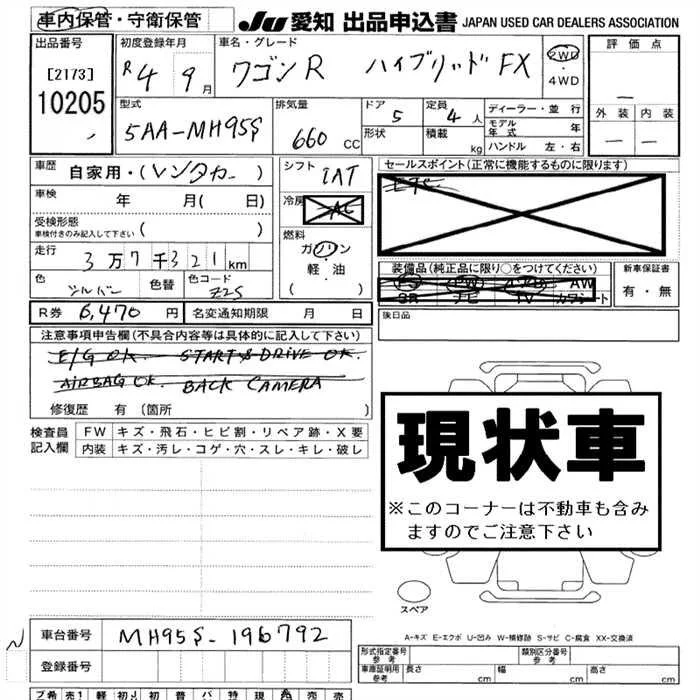 車内保管・守衛保管
JU 愛知 出品申込書 JAPAN USED CAR DEALERS ASSOCIATION
出品番号
[2173]
10205
初度登録年月
R4 9月
車名・グレード
ワゴンR ハイブリッド FX
2WD
・
4WD
評価点
—
外装 内装
— —
型式
5AA-MH95S
排気量
660 CC
ドア
5
形状
定員
4人
積載
kg
ディーラー・並行
モデル年式 年
ハンドル 左・右
車歴
自家用・(レンタカー)
車検
年 月( 日)
受検形態
車検付きのみ記入して下さい ( )
走行
3万7千321km
色
シルバー
色替
色コード
Z2S
シフト
IAT
冷房
AC
燃料
ガソリン
・
軽・油
( )
セールスポイント(正常に機能するものに限ります)
装備品(純正品に限り○をつけてください)
PS PW AW
SR ナビ TV カワシート
新車保証書
有・無
後日品
R券 6,470円 名変通知期限 月 日
注意事項申告欄(不具合内容等は具体的に記入して下さい)
E/G OK. START & DRIVE OK.
AIRBAG OK. BACK CAMERA
修復歴 有(箇所 )
検査員
記入欄
FW キズ・飛石・ヒビ割・リペア跡・X要
内装 キズ・汚レ・コゲ・穴・スレ・キレ・破レ
現状車
※このコーナーは不動車も含み
ますのでご注意下さい
スペア
A-キズ E-エクボ U-凹み W-補修跡 S-サビ C-腐食 XX-交換済
車台番号 MH95S-196792
登録番号
形式指定番号
参考
類別区分番号
参考
車庫証明用
参考
長さ cm 幅 cm 高さ cm